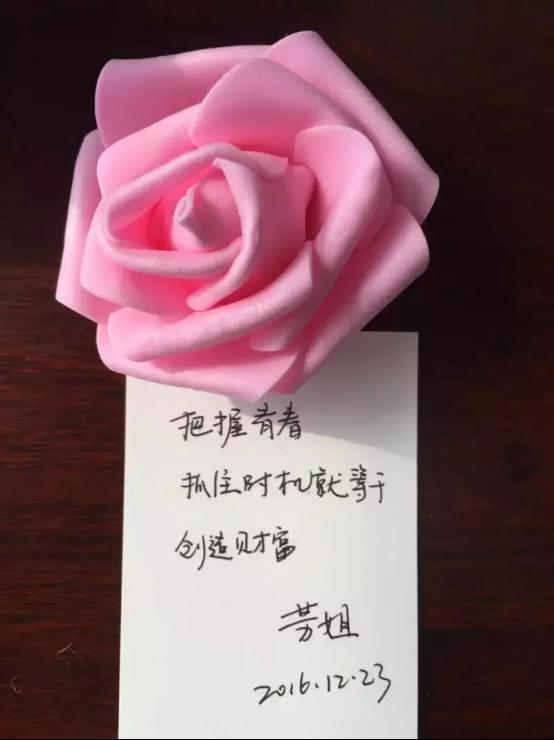 把握青春
抓住时机就等于
创造财富
芳姐
2016.12.23